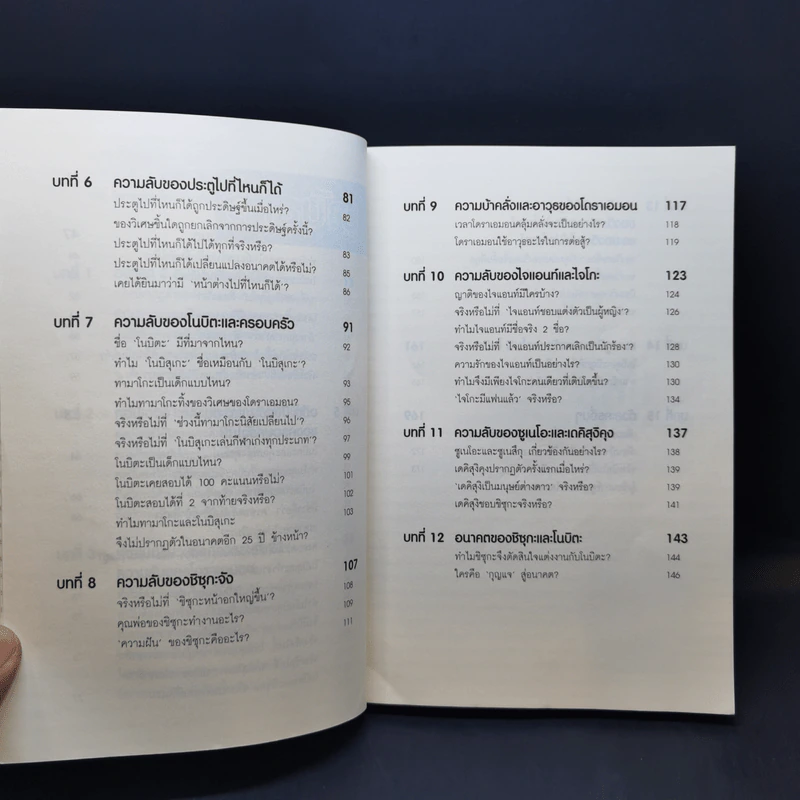 บทที่ 6 ความลับของประตูไปที่ไหนก็ได้ 81
ประตูไปที่ไหนก็ได้ถูกประดิษฐ์ขึ้นเมื่อไหร่? 82
ของวิเศษชิ้นใดถูกยกเลิกจากการประดิษฐ์ครั้งนี้?
ประตูไปที่ไหนก็ได้ไปได้ทุกที่จริงหรือ? 83
ประตูไปที่ไหนก็ได้เปลี่ยนแปลงอนาคตได้หรือไม่? 85
เคยได้ยินมาว่ามี ‘หน้าต่างไปที่ไหนก็ได้’? 86
บทที่ 7 ความลับของโนบิตะและครอบครัว 91
ชื่อ ‘โนบิตะ’ มีที่มาจากไหน? 92
ทำไม ‘โนบิสุเกะ’ ชื่อเหมือนกับ ‘โนบิสุเกะ’?
ทามาโกะเป็นเด็กแบบไหน? 93
ทำไมทามาโกะทิ้งของวิเศษของโดราเอมอน? 95
จริงหรือไม่ที่ ‘ช่วงนี้ทามาโกะนิสัยเปลี่ยนไป’? 96
จริงหรือไม่ที่ ‘โนบิสุเกะเล่นกีฬาเก่งทุกประเภท’? 97
โนบิตะเป็นเด็กแบบไหน? 99
โนบิตะเคยสอบได้ 100 คะแนนหรือไม่? 101
โนบิตะสอบได้ที่ 2 จากท้ายจริงหรือ? 102
ทำไมทามาโกะและโนบิสุเกะ 103
จึงไม่ปรากฏตัวในอนาคตอีก 25 ปี ข้างหน้า?
บทที่ 8 ความลับของชิซุกะจัง 107
จริงหรือไม่ที่ ‘ชิซุกะหน้าอกใหญ่ขึ้น’? 108
คุณพ่อของชิซุกะทำงานอะไร? 109
‘ความฝัน’ ของชิซุกะคืออะไร? 111
บทที่ 9 ความบ้าคลั่งและอาวุธของโดราเอมอน 117
เวลาโดราเอมอนคลุ้มคลั่งจะเป็นอย่างไร? 118
โดราเอมอนใช้อาวุธอะไรในการต่อสู้? 119
บทที่ 10 ความลับของไจแอนท์และไจโกะ 123
ญาติของไจแอนท์มีใครบ้าง? 124
จริงหรือไม่ที่ ‘ไจแอนท์ชอบแต่งตัวเป็นผู้หญิง’? 126
ทำไมไจแอนท์มีชื่อจริง 2 ชื่อ?
จริงหรือไม่ที่ ‘ไจแอนท์ประกาศเลิกเป็นนักร้อง’? 128
ความรักของไจแอนท์เป็นอย่างไร? 130
ทำไมจึงมีเพียงไจโกะคนเดียวที่เติบโตขึ้น? 130
‘ไจโกะมีแฟนแล้ว’ จริงหรือ? 134
บทที่ 11 ความลับของซูเนโอะและเดคิสุงิคุง 137
ซูเนโอะและซูเนสึกุ เกี่ยวข้องกันอย่างไร? 138
เดคิสุงิคุงปรากฏตัวครั้งแรกเมื่อไหร่? 139
‘เดคิสุงิเป็นมนุษย์ต่างดาว’ จริงหรือ? 139
เดคิสุงิชอบชิซุกะจริงหรือ? 141
บทที่ 12 อนาคตของชิซุกะและโนบิตะ 143
ทำไมชิซุกะจึงตัดสินใจแต่งงานกับโนบิตะ? 144
ใครคือ ‘กุญแจ’ สู่อนาคต? 146